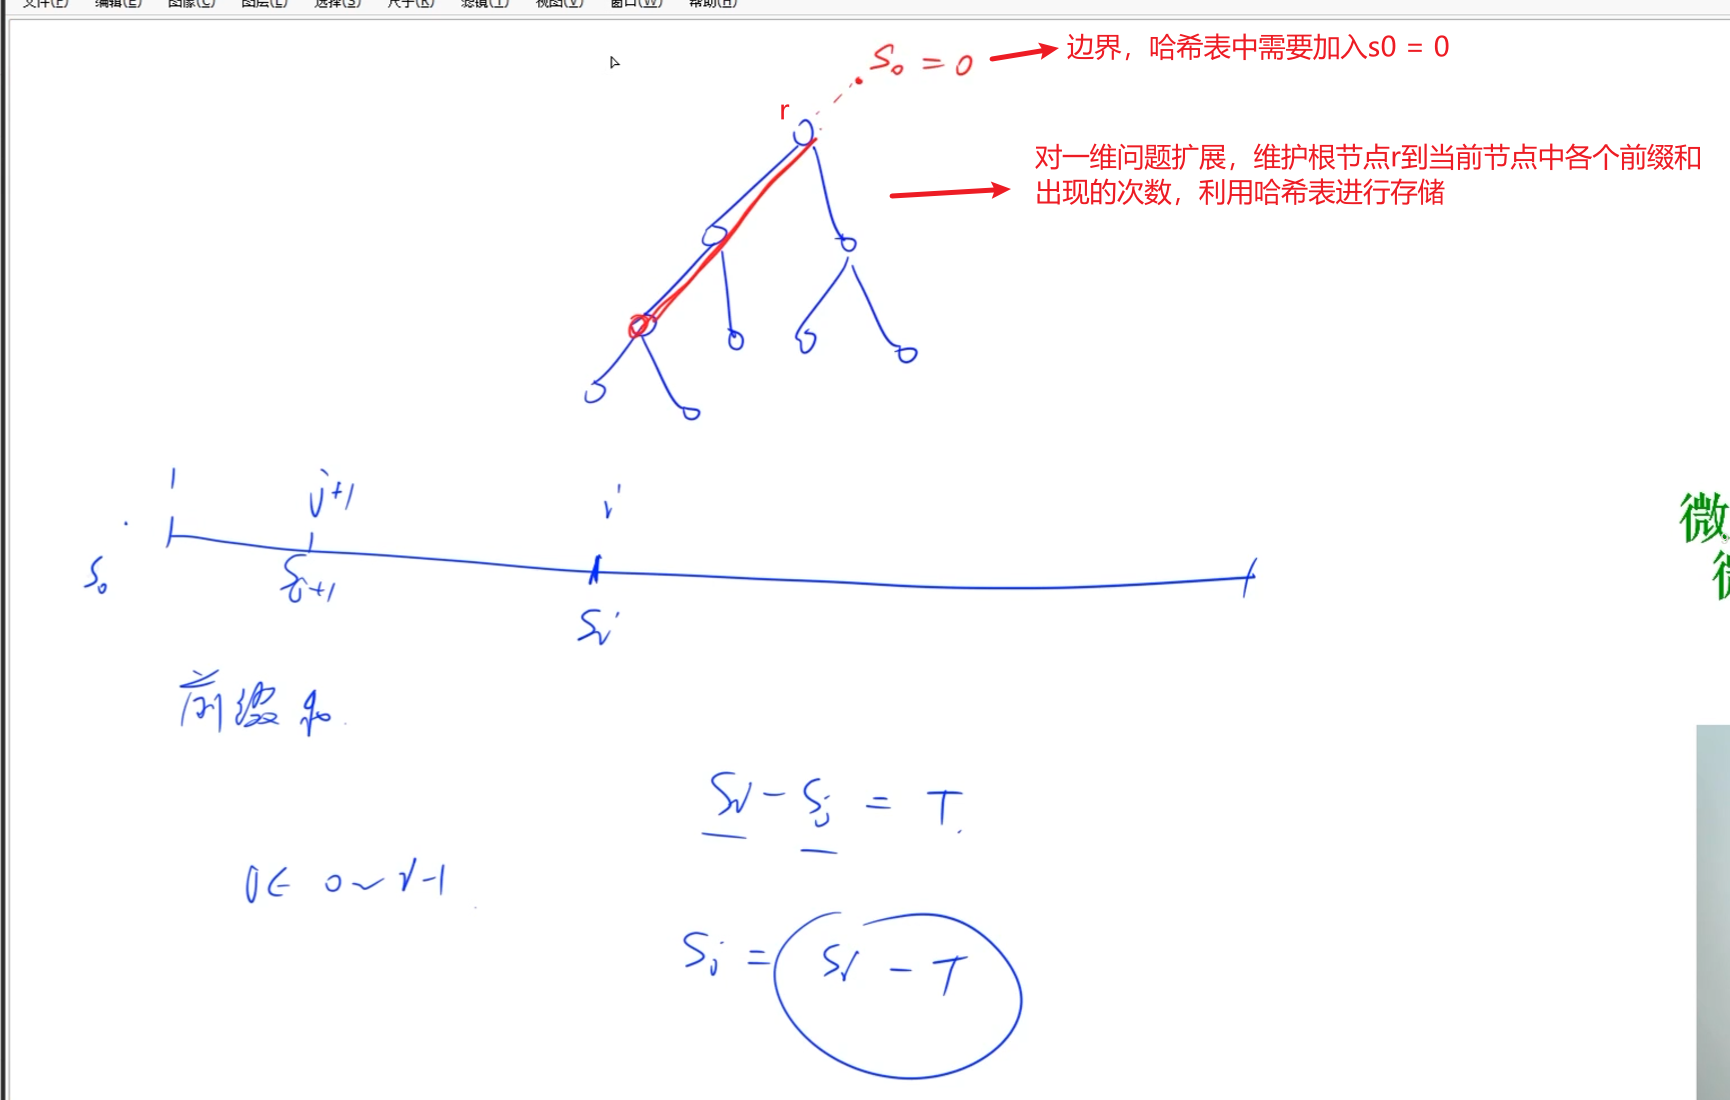 文件(F) 编辑(E) 图像(C) 图层(L) 选择(S) 尺寸(R) 滤镜(T) 视图(V) 窗口(W) 帮助(H)
S₀ = 0
边界，哈希表中需要加入s0 = 0
r
对一维问题扩展，维护根节点r到当前节点中各个前缀和
出现的次数，利用哈希表进行存储
1 j+1 i
S₀ Sj+1 Si
微
微
前缀和
Si - Sj = T
j ∈ 0 ~ i-1
Sj = Si - T